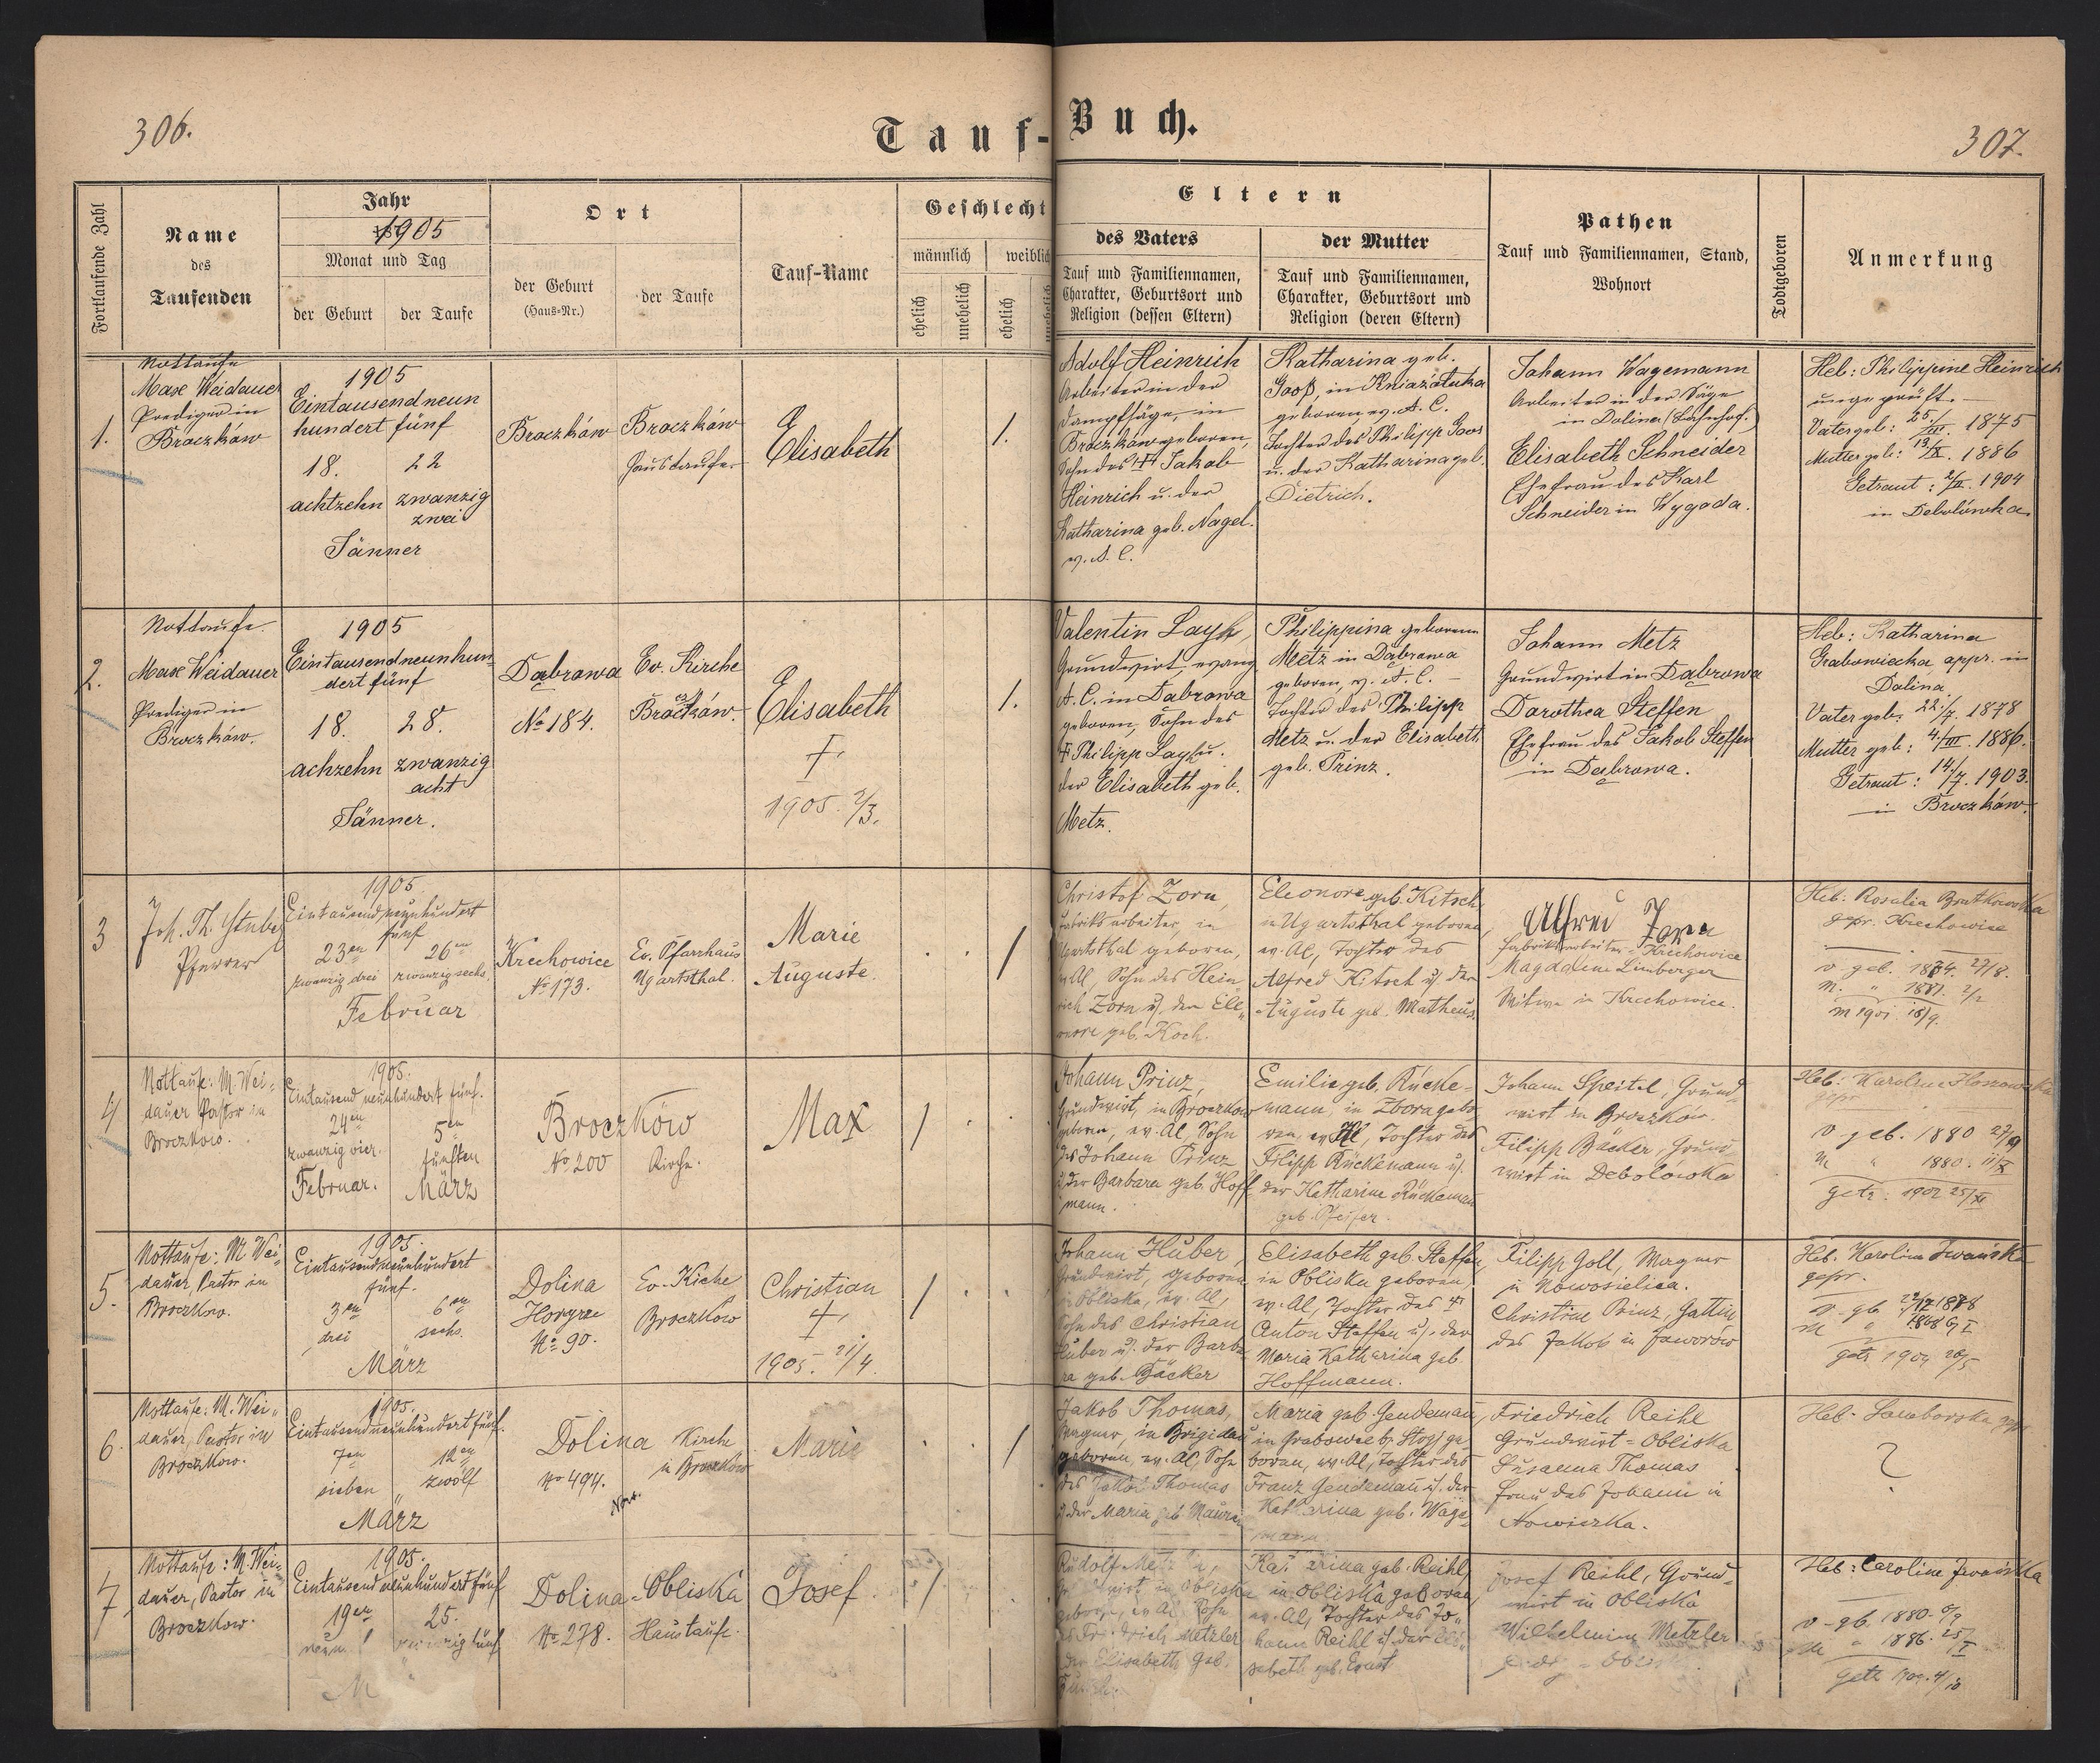 306.
Tauf-Buch.
307.
Fortlaufende Zahl
Name
des
Taufenden
Jahr
1905
Monat und Tag
der Geburt
der Taufe
Ort
der Geburt
(Haus-Nr.)
der Taufe
Tauf-Name
Geschlecht
männlich
weiblich
ehelich
unehelich
ehelich
unehelich
Eltern
des Vaters
Tauf und Familiennamen,
Charakter, Geburtsort und
Religion (dessen Eltern)
der Mutter
Tauf und Familiennamen,
Charakter, Geburtsort und
Religion (deren Eltern)
Pathen
Tauf und Familiennamen, Stand,
Wohnort
Todtgeboren
Anmerkung
1.
Nottaufe
Max Weidauer
Prediger in
Broczków
1905
Eintausendneun
hundert fünf
18. 22
achtzehn zwanzig
zwei
Jänner
Broczków
Broczków
Haustaufe
Elisabeth
1.
Adolf Heinrich
Arbeiter in der
Dampfsäge, in
Broczków geboren,
Sohn des † Jakob
Heinrich u. der
Katharina geb. Nagel.
ev. A. C.
Katharina geb.
Gooß, in Kniaziołuka
geboren ev. A. C.
Tochter des Philipp Goos
u. der Katharina geb.
Dietrich.
Johann Wagemann
Arbeiter in der Säge
in Dolina (Bahnhof.)
Elisabeth Schneider
Ehefrau des Karl
Schneider in Wygoda.
Heb: Philippine Heinrich
ungeprüft.
Vater geb: 1875
Mutter geb: 1886
Getraut: 1904
in Debolówka
2.
Nottaufe.
Max Weidauer
Prediger in
Broczków.
1905
Eintausendneunhun
dert fünf
18. 28.
achzehn zwanzig
acht
Jänner.
Dąbrowa
No 184.
Ev. Kirche
Broczków.
Elisabeth
†
1905. 2/3.
1.
Valentin
Grundwirt, evang
A. C. in Dąbrowa
geboren, Sohn des
† Philipp
der Elisabeth geb.
Metz.
Philippina geborene
Metz in Dąbrowa
geboren, ev. A. C. –
Tochter des Philipp
Metz u. der Elisabeth
geb. Prinz.
Johann Metz
Grundwirt in Dąbrowa
Dorothea Steffen
Ehefrau des Jakob Steffen
in Dąbrowa.
Heb: Katharina
Grabowiecka appr. in
Dolina.
Vater geb: 22./7. 1878
Mutter geb: 4./III. 1886.
Getraut: 14./7. 1903.
in Broczków
3
Joh. Th. Stuber
Pfarrer
1905.
Eintausendneunhundert
fünf
23en 26en
zwanzig drei zwanzig sechs.
Februar
Krechowice
No 173.
Ev. Pfarrhaus
Ugartsthal.
Marie
Auguste.
/
Christof Zorn,
Fabriksarbeiter, in
Ugartsthal geboren,
ev. Al, Sohn des Hein„
rich Zorn u. der Ele„
onore geb. Koch.
Eleonore geb. Kitsch
in Ugartsthal geboren,
ev. Al, Tochter des
Alfred Kitsch u. der
Auguste geb. Matheus.
Alfred Zorn
Fabriksarbeiter - Krechowice
Magdalene Limberger
Witwe in Krechowice.
Heb: Rosalia Bratkowska
gepr. Krechowice
v geb. 27/8.
m. " 1881. 2/2
18/9.
4
Nottaufe: M. Wei=
dauer Pastor in
Broczkow.
1905.
Eintausend neunhundert fünf.
24en 5en
zwanzig vier. fünften
Februar. März
Broczków
No 200 Kirche.
Max
/
Johann Prinz,
Grundwirt, in Broczkow
geboren, ev. Al, Sohn
des Johann Prinz
u. der Barbara geb. Hoff
mann.
Emilie geb. Rücke=
mann, in Zbora gebo
ren, ev. Al, Tochter des
Filipp Rückemann u.
der Katharina Rückemann
geb. Pfeifer.
Johann Speitel, Grund=
wirt in Broczkow.
Filipp Bäcker, Grund=
wirt in Debolówka
Heb: Karoline
gepr.
v geb. 1880 27/9
M " 1880. 11/X
getr. 1902 25/XI
5.
Nottaufe: M. Wei
dauer, Pastor in
Broczkow.
1905.
Eintausendneunhundert
fünf.
3en 6en
drei sechs.
März
Dolina
No 90.
Ev. Kirche
Broczkow
Christian
†
1905. 21/4.
/
Johann Huber,
Grundwirt, geboren
in Obliska, ev. Al,
Sohn des Christian
Huber u. der Barba
ra geb. Bäcker
Elisabeth geb. Steffen,
in Obliska geboren,
ev. Al, Tochter des †
Anton Steffen u. der
Maria Katharina geb.
Hoffmann.
Filipp Goll, Wagner
in Nowosielica.
Christine Prinz, Gattin
des Jakob in Jaworow
Heb. Karolina Iwańska
gepr.
getr 1904 26/5
6.
Nottaufe: M. Wei„
dauer, Pastor in
Broczkow.
1905.
Eintausendneunhundert fünf.
7en 12en
sieben „ zwölf
März
Dolina
No 494.
Kirche
in Broczkow
Marie
/
Jakob Thomas,
Wagner, in Brigidau
geboren, ev. Al, Sohn
des Jakob Thomas
u der Maria geb Maurer
Maria geb. Gendeman,
in Grabowce b. Stryj ge
boren, ev. Al, Tochter des
Franz Gendeman u. der
Katharina geb. Wage=
mann
Friedrich Reihl
Grundwirt = Obliska
Susanna Thomas
Frau des Johann in
Nowiczka.
Heb. Samborska gepr
?
7
Nottaufe: M. Wei=
dauer, Pastor in
Broczkow.
1905.
Eintausendneunhundert fünf
19en 25.
neun zwanzig fünf
M
Dolina-Obliska
No 278. Haustaufe.
Josef
/
Rudolf Metzler,
Grundwirt in Obliska
geboren, ev Al Sohn
des Friedrich Metzler
der Elisabeth geb.
Katharina geb. Reihl,
in Obliska geboren,
ev. Al, Tochter des Jo„
hann Reihl u. der Eli„
sabeth geb. Ernst
Josef Reihl, Grund=
wirt in Obliska
Wilhelmine Metzler
Heb: Caroline Iwańska
v - gb. 1880. 6/9
M " 1886. 25/I
getr 4/10